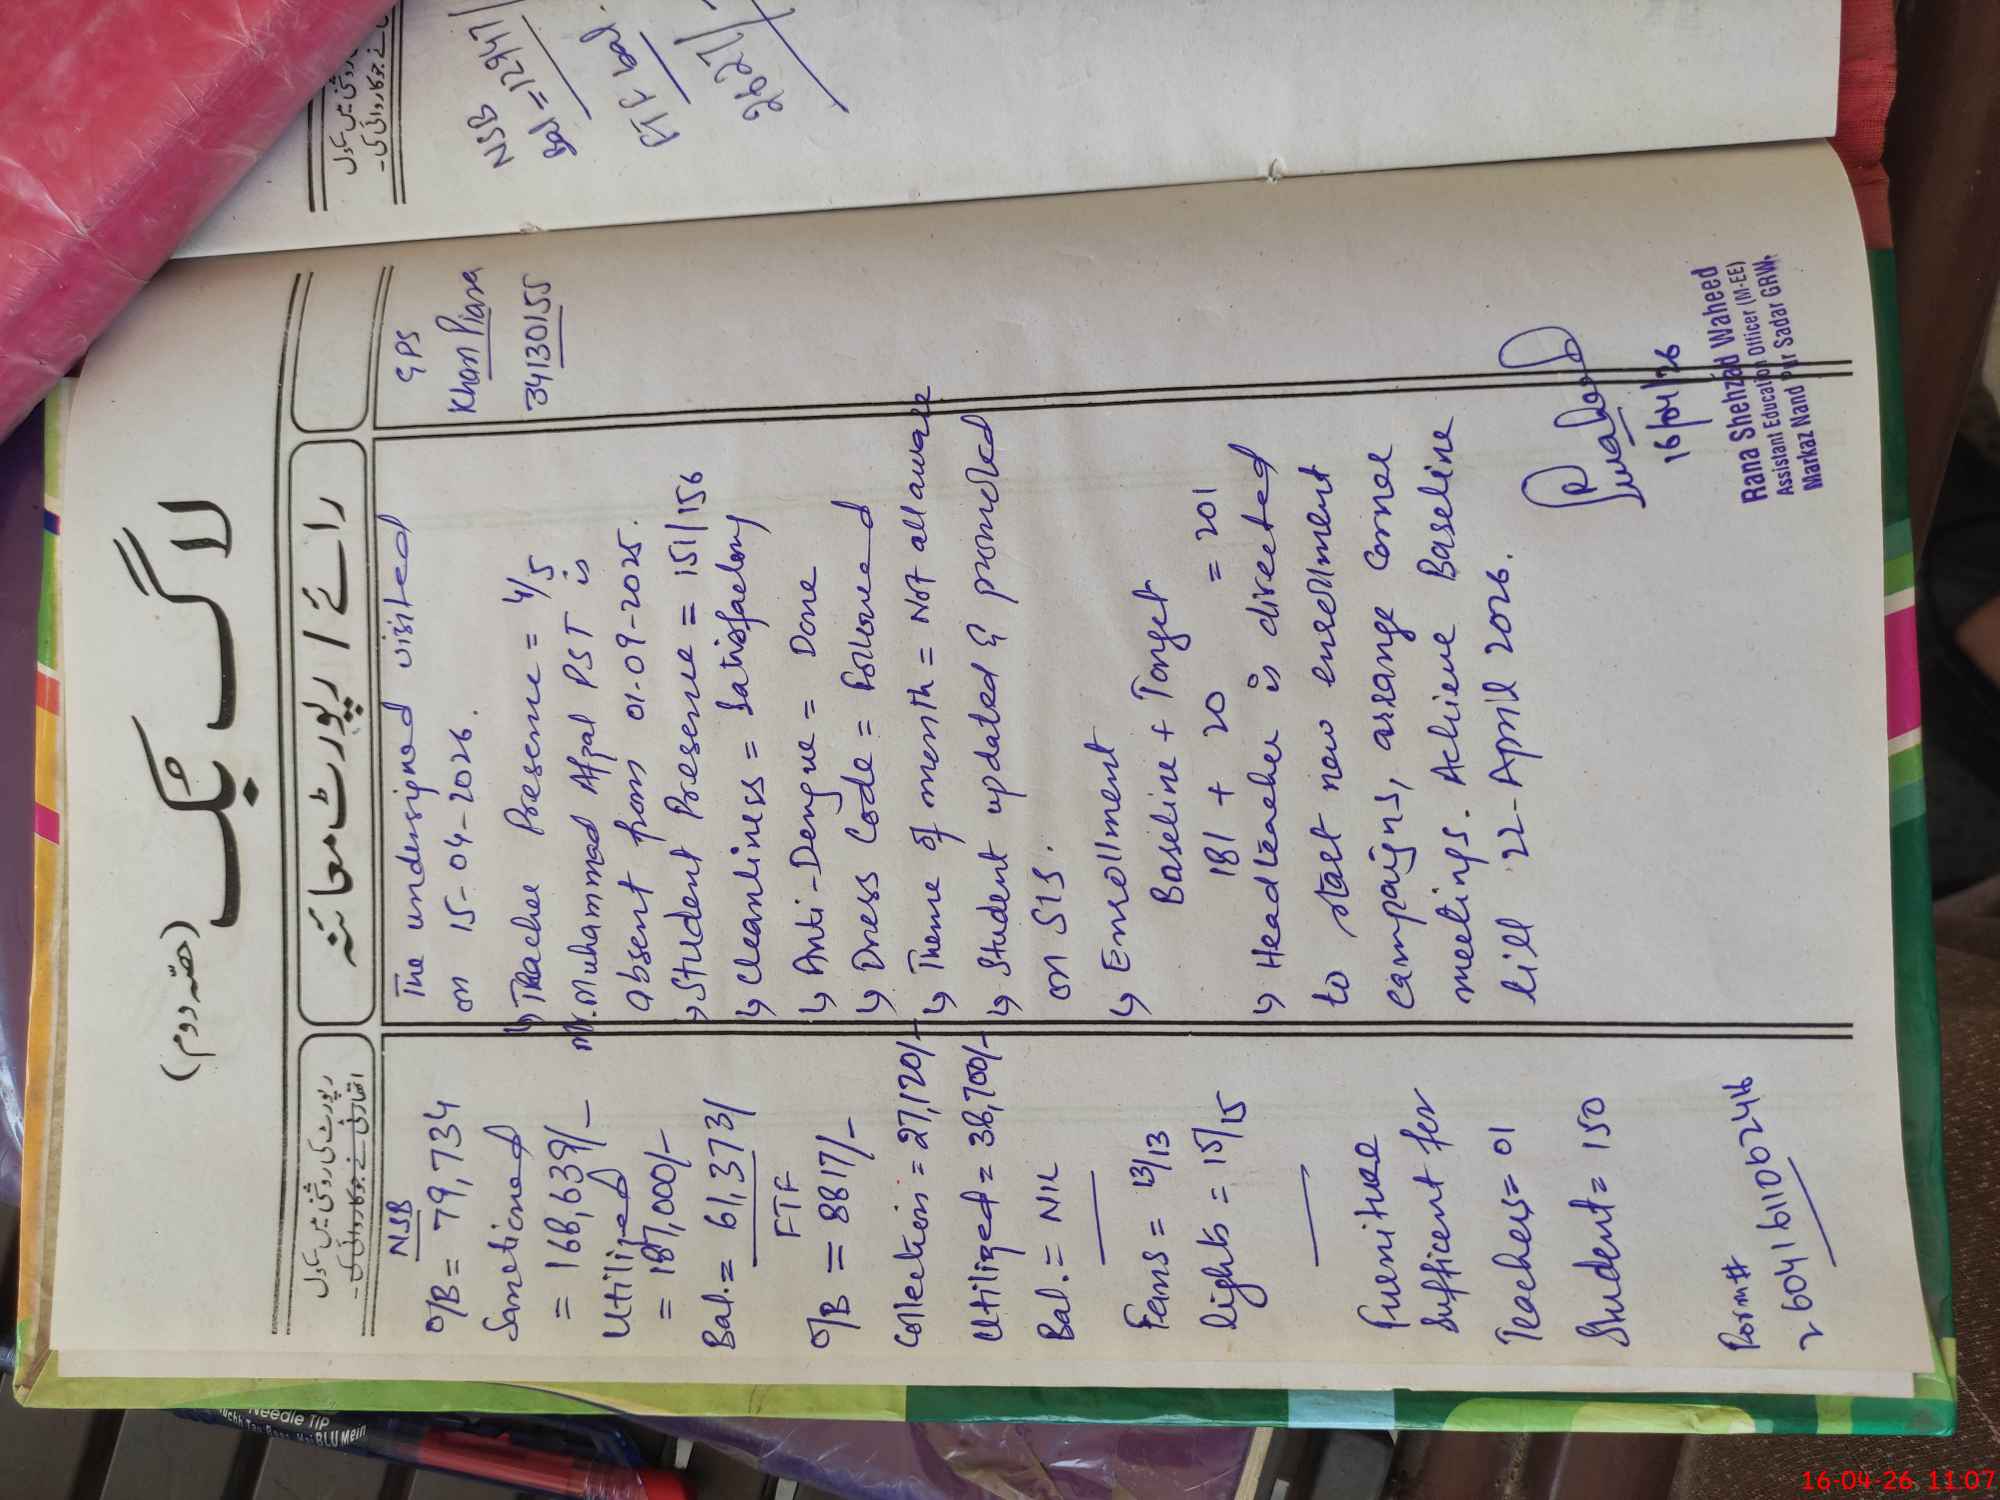 لاگ بُک
(حصّہ دوم)
رپورٹ کی روشنی میں سکول
اتھارٹی نے جو کارروائی کی۔
رائے / رپورٹ معائنہ
NSB
O/B = 79,734
Sanctioned
= 168,639/-
Utilized
= 187,000/-
Bal. = 61,373/
FTF
O/B = 8817/-
Collection = 27,120/-
Utilized = 38,700/-
Bal. = NIL
Fans = 13/13
Lights = 15/15
Furniture
Sufficent for
Teachers = 01
Student = 150
Form#
2604161100246
The undersigned visited
on 15-04-2026.
↳ Teacher Presence = 4/5
Mr. Muhammad Afzal PST is
absent from 01-09-2025.
↳ Student Presense = 151/156
↳ Cleanliness = Satisfactory
↳ Anti-Dengue = Done
↳ Dress Code = Followed
↳ Theme of month = Not all aware
↳ Student updated & promoted
on SIS.
↳ Enrollment
Baseline + Target
181 + 20 = 201
↳ Headteacher is directed
to start new enrollment
campaigns, arrange corner
meetings. Achieve Baseline
till 22-April 2026.
GPS
Khan Piara
34130155
16/04/26
Rana Shehzad Waheed
Assistant Education Officer (M-EE)
Markaz Nand Pur Sadar GRW.
روشنی میں سکول
نے جو کارروائی کی۔
NSB
Bal = 12947/
FTF bal.
2627/
Needle TIP
BLU Mein
16-04-26 11:07